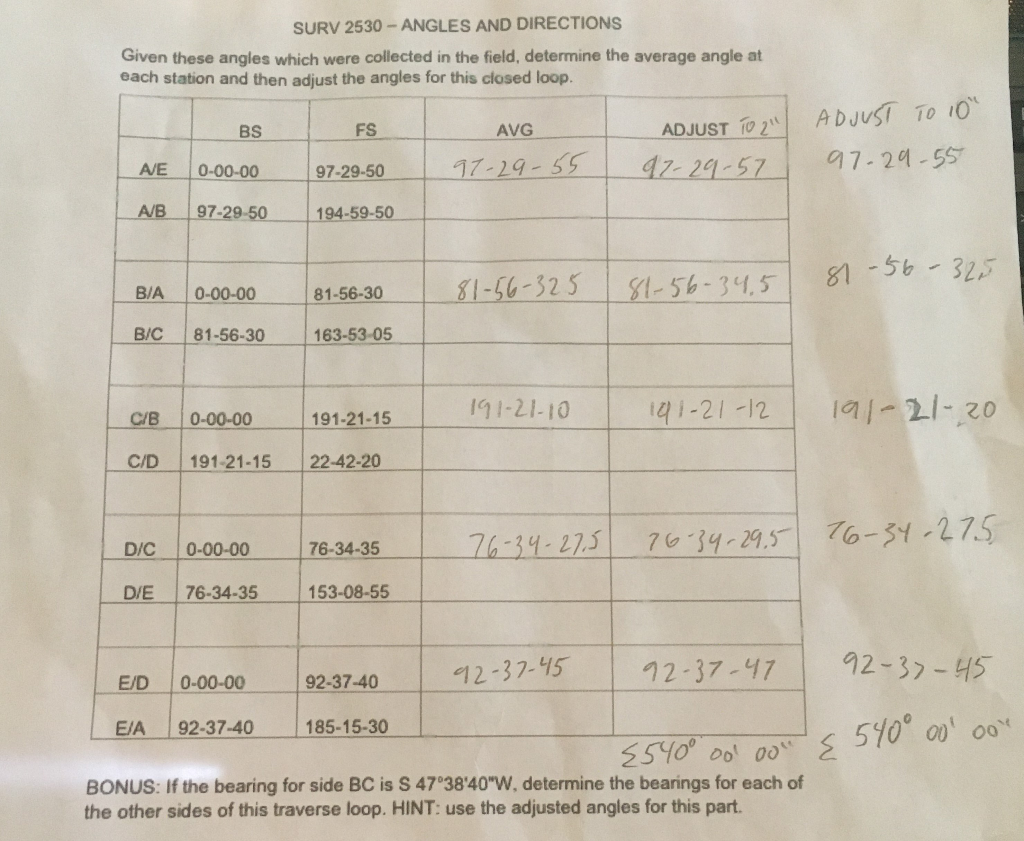 SURV 2530 – ANGLES AND DIRECTIONS
Given these angles which were collected in the field, determine the average angle at
each station and then adjust the angles for this closed loop.
BS FS AVG ADJUST TO 2" ADJUST TO 10"
A/E 0-00-00 97-29-50 97-29-55 97-29-57 97-29-55
A/B 97-29-50 194-59-50
B/A 0-00-00 81-56-30 81-56-32.5 81-56-34.5 81-56-32.5
B/C 81-56-30 163-53-05
C/B 0-00-00 191-21-15 191-21-10 191-21-12 191-21-20
C/D 191-21-15 22-42-20
D/C 0-00-00 76-34-35 76-34-27.5 76-34-29.5 76-34-27.5
D/E 76-34-35 153-08-55
E/D 0-00-00 92-37-40 92-37-45 92-37-47 92-37-45
E/A 92-37-40 185-15-30
Σ540° 00' 00" Σ 540° 00' 00"
BONUS: If the bearing for side BC is S 47°38'40"W, determine the bearings for each of
the other sides of this traverse loop. HINT: use the adjusted angles for this part.